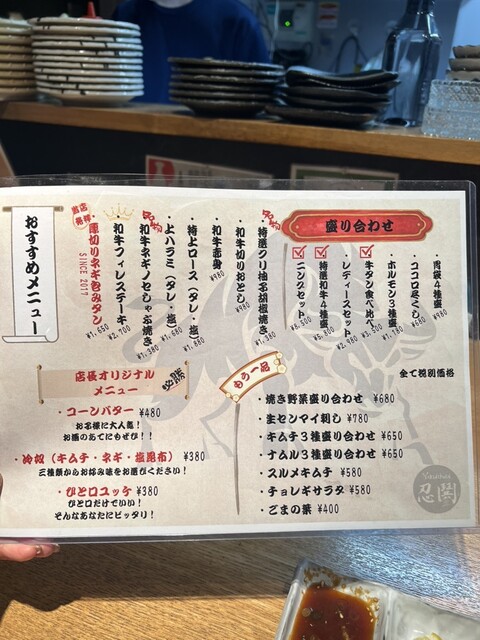 おすすめメニュー
当店発祥
厚切りネギ包みタン
SINCE 2017
¥1,550
・和牛フィレステーキ
¥2,700
名物
・和牛ネギノセしゃぶ焼き
¥1,380
・上ハラミ(タレ・塩)
¥1,680
・特上ロース(タレ・塩)
¥1,880
・和牛赤身
¥980
・和牛切りおとし
¥980
名物
・特選クリ柚子胡椒焼き
¥1,380
盛り合わせ
・ニングセット
・特選和牛4種盛
・レディースセット
¥2,980
・牛タン食べ比べ
・ホルモン3種盛
¥1,180
・ココロ尽くし
・胃袋4種盛
¥980
全て税別価格
店長オリジナル
メニュー
・コーンバター ¥480
お子様に大人気!
お酒のあてにもぜひ!!
・冷奴(キムチ・ネギ・塩昆布) ¥380
三種類からお好み味をお選びください!
・ひと口ユッケ ¥380
ひと口だけでいい!
そんなあなたにピッタリ!
もう一品
・焼き野菜盛り合わせ ¥680
・生センマイ刺し ¥780
・キムチ3種盛り合わせ ¥650
・ナムル3種盛り合わせ ¥650
・スルメキムチ ¥580
・チョレギサラダ ¥580
・ごまの葉 ¥400
Yakiniku